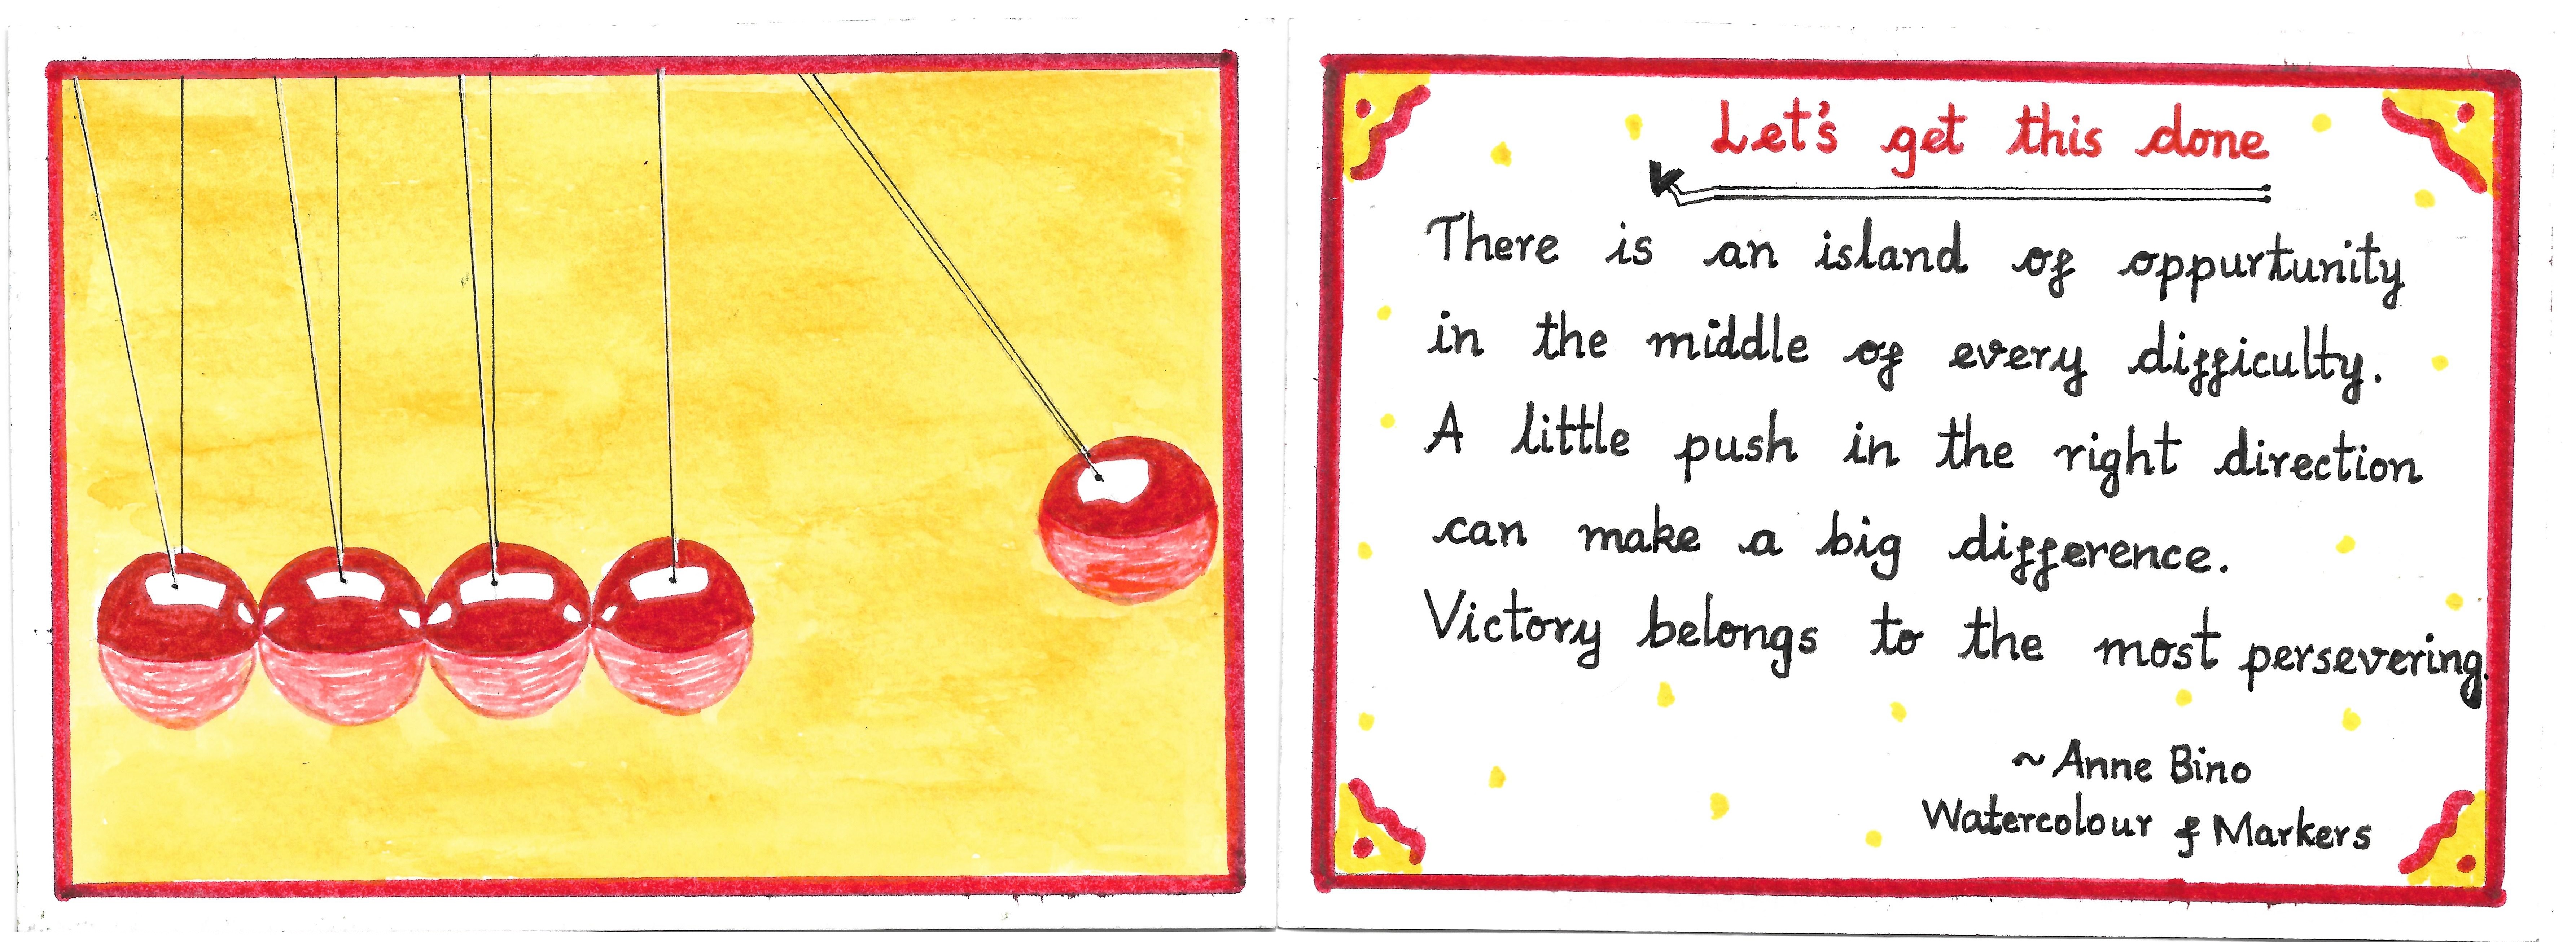 Let's get this done
There is an island of oppurtunity
in the middle of every difficulty.
A little push in the right direction
can make a big difference.
Victory belongs to the most persevering.
~Anne Bino
Watercolour & Markers